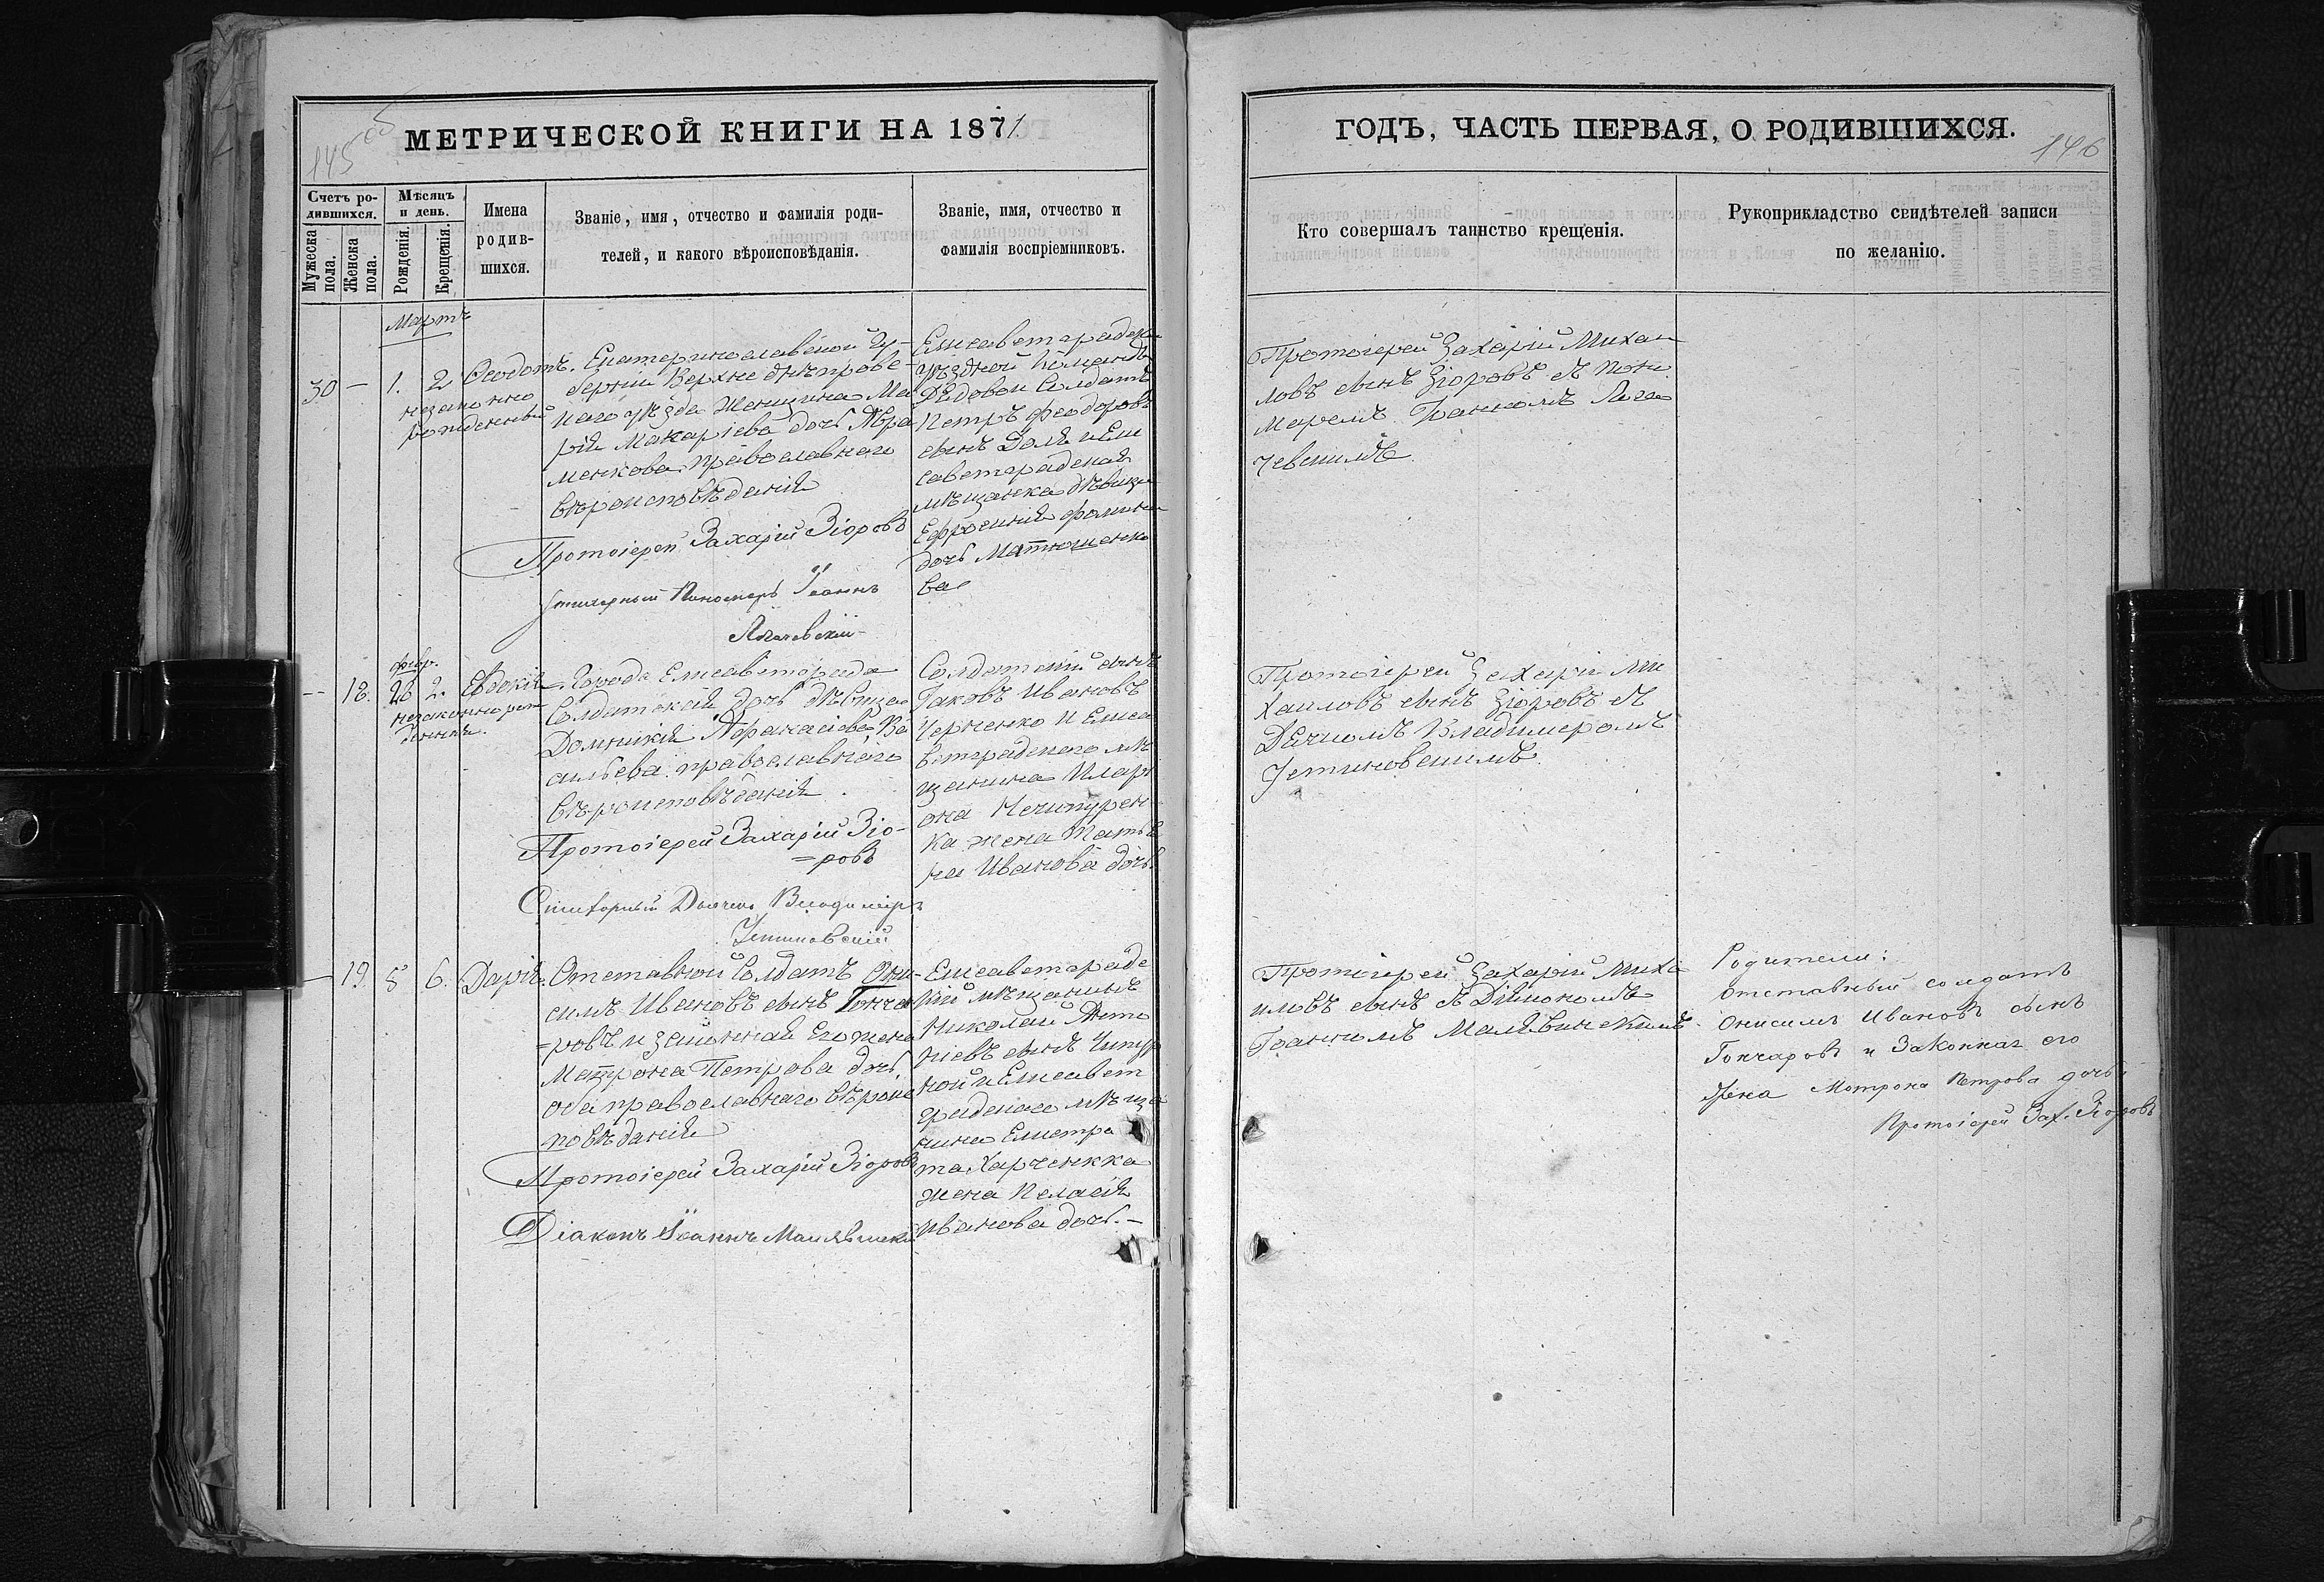 МЕТРИЧЕСКОЙ КНИГИ НА 1871
145
Счетъ ро-
дившихся.
Мужеска
пола.
Женска
пола.
Мѣсяцъ
и день.
Рожденія.
Крещенія.
Имена
родив-
шихся.
Званіе, имя, отчество и фамилія роди-
телей, и какого вѣроисповѣданія.
Званіе, имя, отчество и
фамилія воспріемниковъ.
Мартъ
30 — 1. 2 Ѳеодотъ.
незаконно
рожденный
Екатеринославской Гу-
берніи Верхнеднѣпровс-
каго уѣзда Женщина Ма
рія Макаріева дочь Абра
менкова, православнаго
вѣроисповѣданія
Протоіерей Захарій Зіоровъ
Пономарь Іоаннъ
Лагачевскій
Елисаветградской
уѣздной команды
Рядовой Солдатъ
Петръ Феодоровъ
сынъ Доля и Ели
саветградская
мѣщанка дѣвица
Ефросинія Фомина
дочь Матюшенко
ва
— 18. февр. 26 2. Евдокія
незаконнорож
денная.
Города Елисаветграда
Солдатская дочь дѣвица
Домникія Афанасіева Ва
сильева православнаго
вѣроисповѣданія.
Протоіерей Захарій Зіо-
=ровъ
Дьячекъ Владиміръ
Устиновскій
Солдатскій сынъ
Іаковъ Ивановъ
Черненко и Елиса
ветградскаго мѣ
щанина Илари
она Нечипурен
ка жена Татья
на Иванова дочь
— 19. 5 6. Дарія.
Отставной Солдатъ Они-
симъ Ивановъ сынъ Гонча
=ровъ и законная Его жена
Матрона Петрова дочь,
оба православнаго вѣроис
повѣданія
Протоіерей Захарій Зіоровъ
Діаконъ Іоаннъ Малявинскій
Елисаветградс
кій мѣщанинъ
Николай Анто
ніевъ сынъ Чипур
ной и Елисавет
градскаго мѣща
нина Елистра
та Харченкка
жена Пелагія
Иванова дочь.—
ГОДЪ, ЧАСТЬ ПЕРВАЯ, О РОДИВШИХСЯ.
146
Кто совершалъ таинство крещенія.
Рукоприкладство свидѣтелей записи
по желанію.
Протоіерей Захарій Михаи
ловъ сынъ Зіоровъ съ Поно
маремъ Іоанномъ Лага
чевскимъ
Протоіерей Захарій Ми
хаиловъ сынъ Зіоровъ съ
Дьячкомъ Владиміромъ
Устиновскимъ.
Протоіерей Захарій Миха
иловъ сынъ съ Діакономъ
Іоанномъ Малявинскимъ.
Родители:
отставный солдатъ
Онисимъ Ивановъ сынъ
Гончаровъ и Законная его
Жена Матрона Петрова дочь.
Протоіерей Зах. Зіоровъ